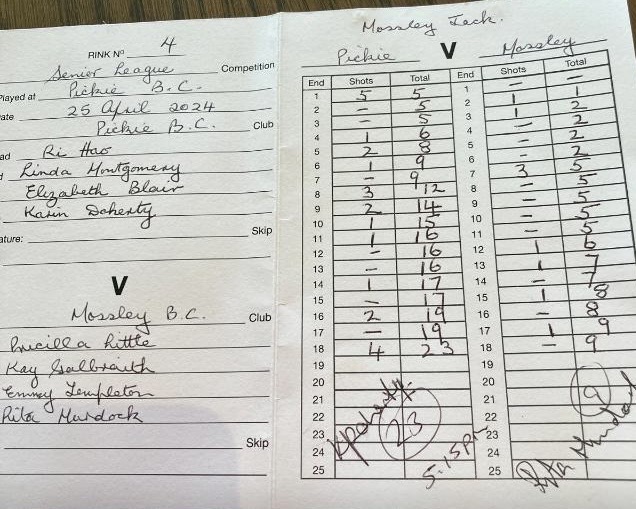 RINK Nº 4
Senior League Competition
layed at Pickie B.C.
ate 25 April 2024
Pickie B.C. Club
ad Ri Hao
Linda Montgomery
Elizabeth Blair
Karin Doherty
ature: Skip
V
Mossley B.C. Club
Priscilla Little
Kay Galbraith
Emmy Templeton
Rita Murdock
Skip
Mossley Jack.
Pickie V Mossley
End Shots Total End Shots Total
1 5 5 1 - -
2 - 5 2 1 1
3 - 5 3 1 2
4 1 6 4 - 2
5 2 8 5 - 2
6 1 9 6 - 2
7 - 9 7 3 5
8 3 12 8 - 5
9 2 14 9 - 5
10 1 15 10 - 5
11 1 16 11 - 5
12 - 16 12 1 6
13 - 16 13 1 7
14 1 17 14 - 7
15 - 17 15 1 8
16 2 19 16 - 8
17 - 19 17 1 9
18 4 23 18 - 9
19 19
20 20
21 21
22 22
23 23
24 24
25 25
KDoherty
23
5.15pm
9
Rita Murdock